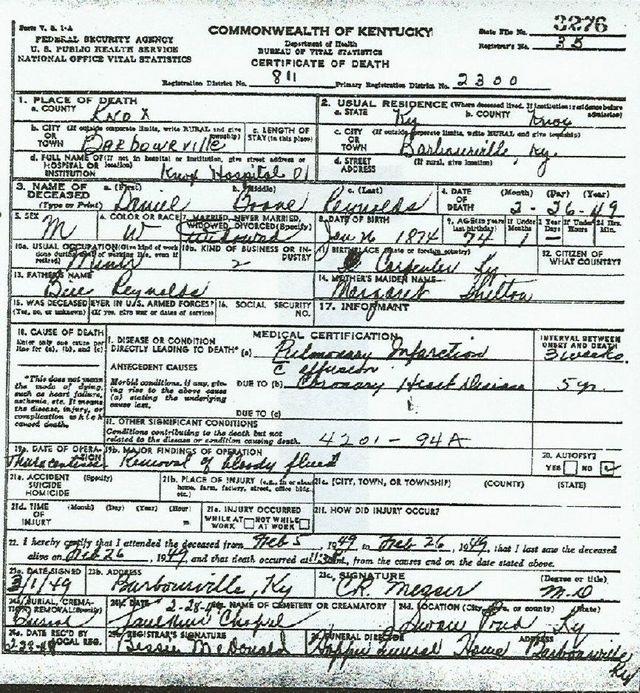 Form V. S. 1-A
FEDERAL SECURITY AGENCY
U. S. PUBLIC HEALTH SERVICE
NATIONAL OFFICE VITAL STATISTICS
COMMONWEALTH OF KENTUCKY
Department of Health
BUREAU OF VITAL STATISTICS
CERTIFICATE OF DEATH
State File No. 3276
Registrar's No. 35
Registration District No. 811 Primary Registration District No. 2300
1. PLACE OF DEATH
a. COUNTY Knox
b. CITY (If outside corporate limits, write RURAL and give township) OR TOWN Barbourville
c. LENGTH OF STAY (in this place)
d. FULL NAME OF (If not in hospital or institution, give street address or location) HOSPITAL OR INSTITUTION Knox Hospital
2. USUAL RESIDENCE (Where deceased lived. If institution: residence before admission)
a. STATE Ky b. COUNTY Knox
c. CITY (If outside corporate limits, write RURAL and give township) OR TOWN Barbourville, Ky.
d. STREET ADDRESS (If rural, give location)
3. NAME OF DECEASED (Type or Print) a. (First) Daniel b. (Middle) Boone c. (Last) Reynolds
4. DATE OF DEATH (Month) (Day) (Year) 2-26-49
5. SEX M
6. COLOR OR RACE W
7. MARRIED, NEVER MARRIED, WIDOWED, DIVORCED (Specify) Widowed
8. DATE OF BIRTH Jan 26 1874
9. AGE (In years last birthday) 74 If Under 1 Months 1 Days If Under 24 Hrs. Hours Min.
10a. USUAL OCCUPATION (Give kind of work done during most of working life, even if retired) Miner
10b. KIND OF BUSINESS OR INDUSTRY
11. BIRTHPLACE (State or foreign country) Carpenter Ky
12. CITIZEN OF WHAT COUNTRY?
13. FATHER'S NAME Reynolds
14. MOTHER'S MAIDEN NAME Margaret Shelton
15. WAS DECEASED EVER IN U.S. ARMED FORCES? (Yes, no, or unknown) (If yes, give war or dates of service)
16. SOCIAL SECURITY NO.
17. INFORMANT
18. CAUSE OF DEATH
Enter only one cause per line for (a), (b), and (c)
MEDICAL CERTIFICATION
INTERVAL BETWEEN ONSET AND DEATH
I. DISEASE OR CONDITION DIRECTLY LEADING TO DEATH* (a) Pulmonary Infarction 3 weeks
c effusion
ANTECEDENT CAUSES
Morbid conditions, if any, giving rise to the above cause (a) stating the underlying cause last.
DUE TO (b) Coronary Heart Disease 5 yr.
DUE TO (c)
*This does not mean the mode of dying, such as heart failure, asthenia, etc. It means the disease, injury, or complication which caused death.
II. OTHER SIGNIFICANT CONDITIONS
Conditions contributing to the death but not related to the disease or condition causing death. 4201-94A
19a. DATE OF OPERATION Thoracentesis
19b. MAJOR FINDINGS OF OPERATION Removal of bloody fluid
20. AUTOPSY? YES NO
21a. ACCIDENT SUICIDE HOMICIDE (Specify)
21b. PLACE OF INJURY (e.g., in or about home, farm, factory, street, office bldg. etc.)
21c. (CITY, TOWN, OR TOWNSHIP) (COUNTY) (STATE)
21d. TIME OF INJURY (Month) (Day) (Year) (Hour) m.
21e. INJURY OCCURRED WHILE AT WORK NOT WHILE AT WORK
21f. HOW DID INJURY OCCUR?
22. I hereby certify that I attended the deceased from Feb 5 1949 to Feb 26, 1949, that I last saw the deceased
alive on Feb 26 1949, and that death occurred at m., from the causes and on the date stated above.
23a. DATE SIGNED 3/1/49
23b. ADDRESS Barbourville, Ky
23c. SIGNATURE (Degree or title) M.D
24a. BURIAL, CREMATION, REMOVAL (Specify) Burial
24b. DATE 2-28-49
24c. NAME OF CEMETERY OR CREAMATORY Chapel
24d. LOCATION (City, town, or county) (State) Swan Pond Ky
25a. DATE REC'D BY LOCAL REG.
25b. REGISTRAR'S SIGNATURE Bessie McDonald
26. FUNERAL DIRECTOR Hopper Funeral Home ADDRESS Barbourville Ky